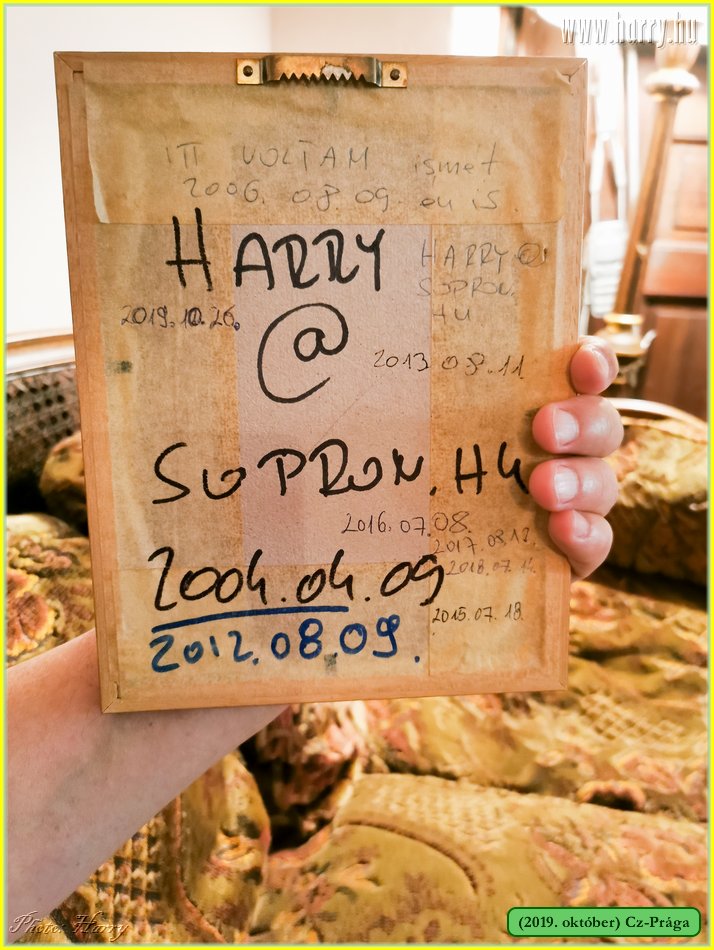 www.harry.hu
ITT VOLTAM ismét
2006. 08. 09. én is
HARRY
HARRY@
SOPRON.
HU
2019.10.26.
@
2013.08.11.
SOPRON.HU
2016.07.08.
2017.08.12.
2018.07.14.
2004.04.09
2015.07.18.
2012.08.09.
Photo: Harry
(2019. október) Cz-Prága